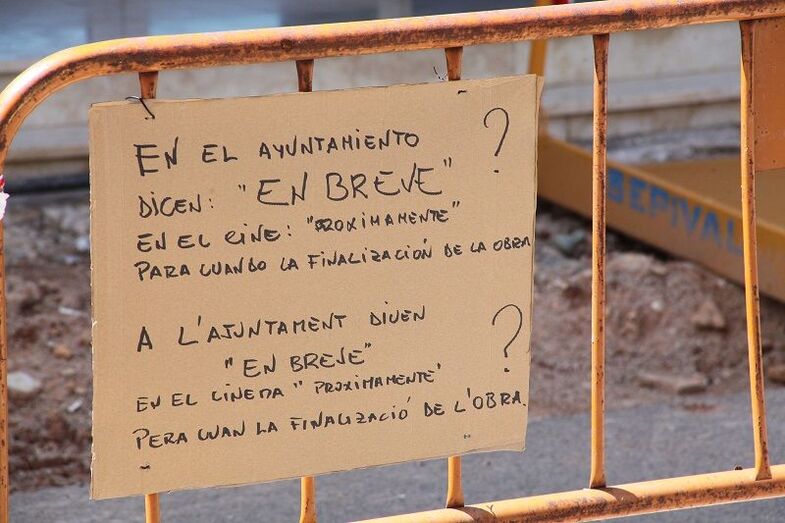 EN EL AYUNTAMIENTO ?
DICEN: "EN BREVE"
EN EL CINE: "PROXIMAMENTE"
PARA CUANDO LA FINALIZACIÓN DE LA OBRA
A L'AJUNTAMENT DIUEN ?
"EN BREVE"
EN EL CINEMA "PROXIMAMENTE'
PERA CUAN LA FINALIZACIÓ DE L'OBRA.
SEPIVAL